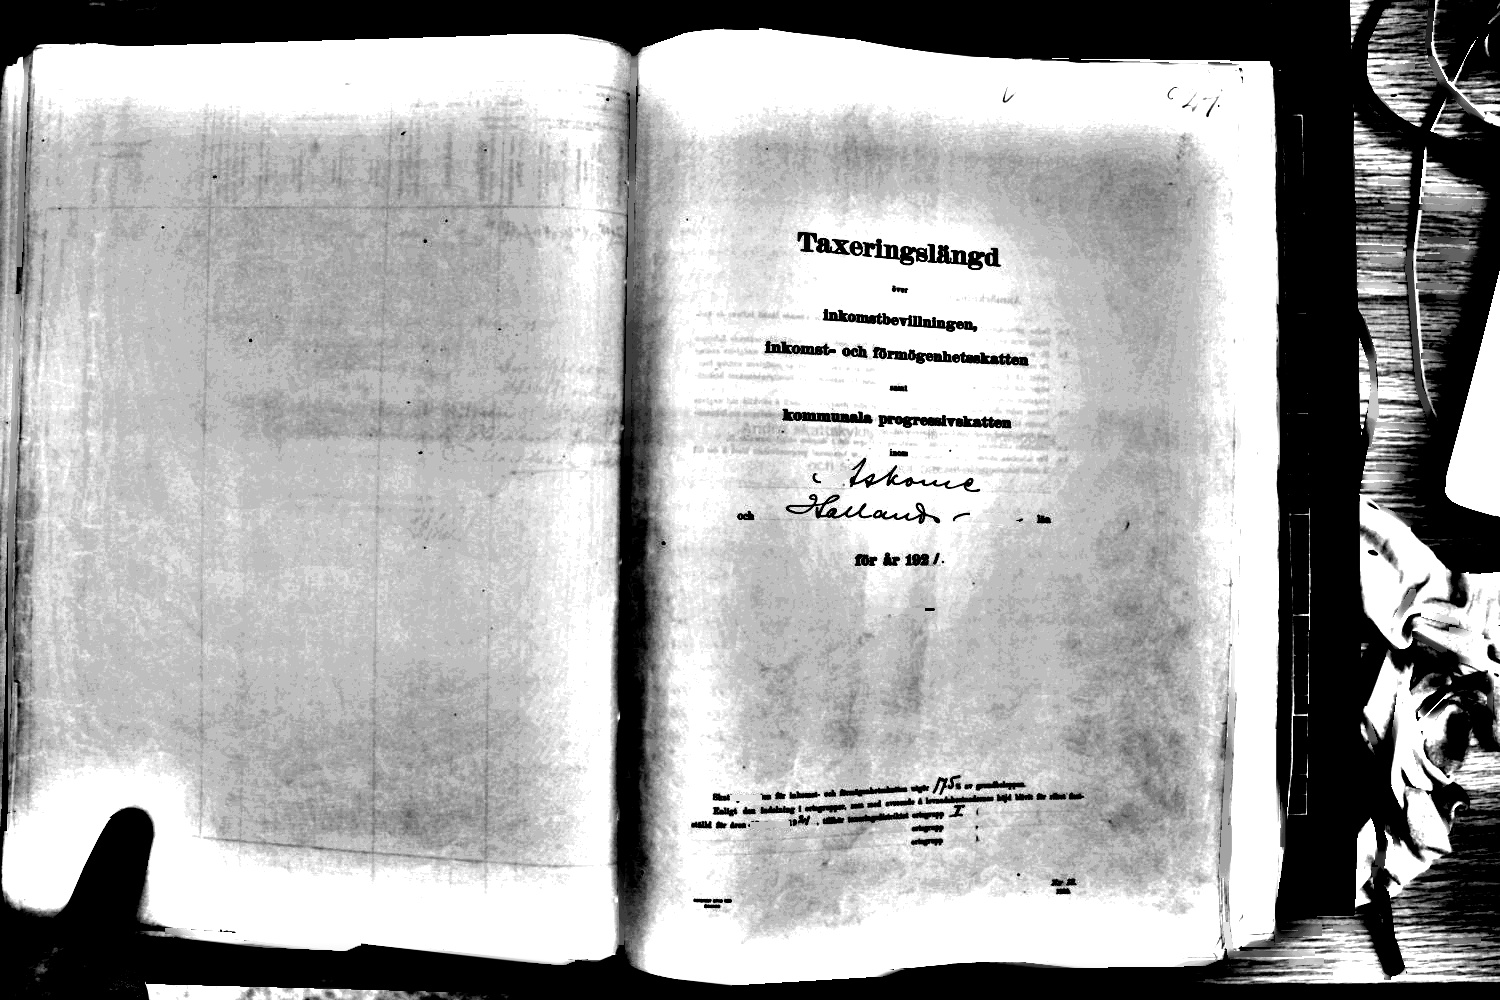 Taxeringslängd
över
inkomstbevillningen,
inkomst- och förmögenhetsskatten
samt
kommunala progressivskatten
inom
i Askome
och Hallands län
för år 1921.
för inkomst- och förmögenhetsskatten utgör 175 % av grundbeloppen.
Enligt den indelning i ortsgrupper, som med avseende å
ställd för åren 1921, tillhör taxeringsdistriktet ortsgrupp I
ortsgrupp
ortsgrupp